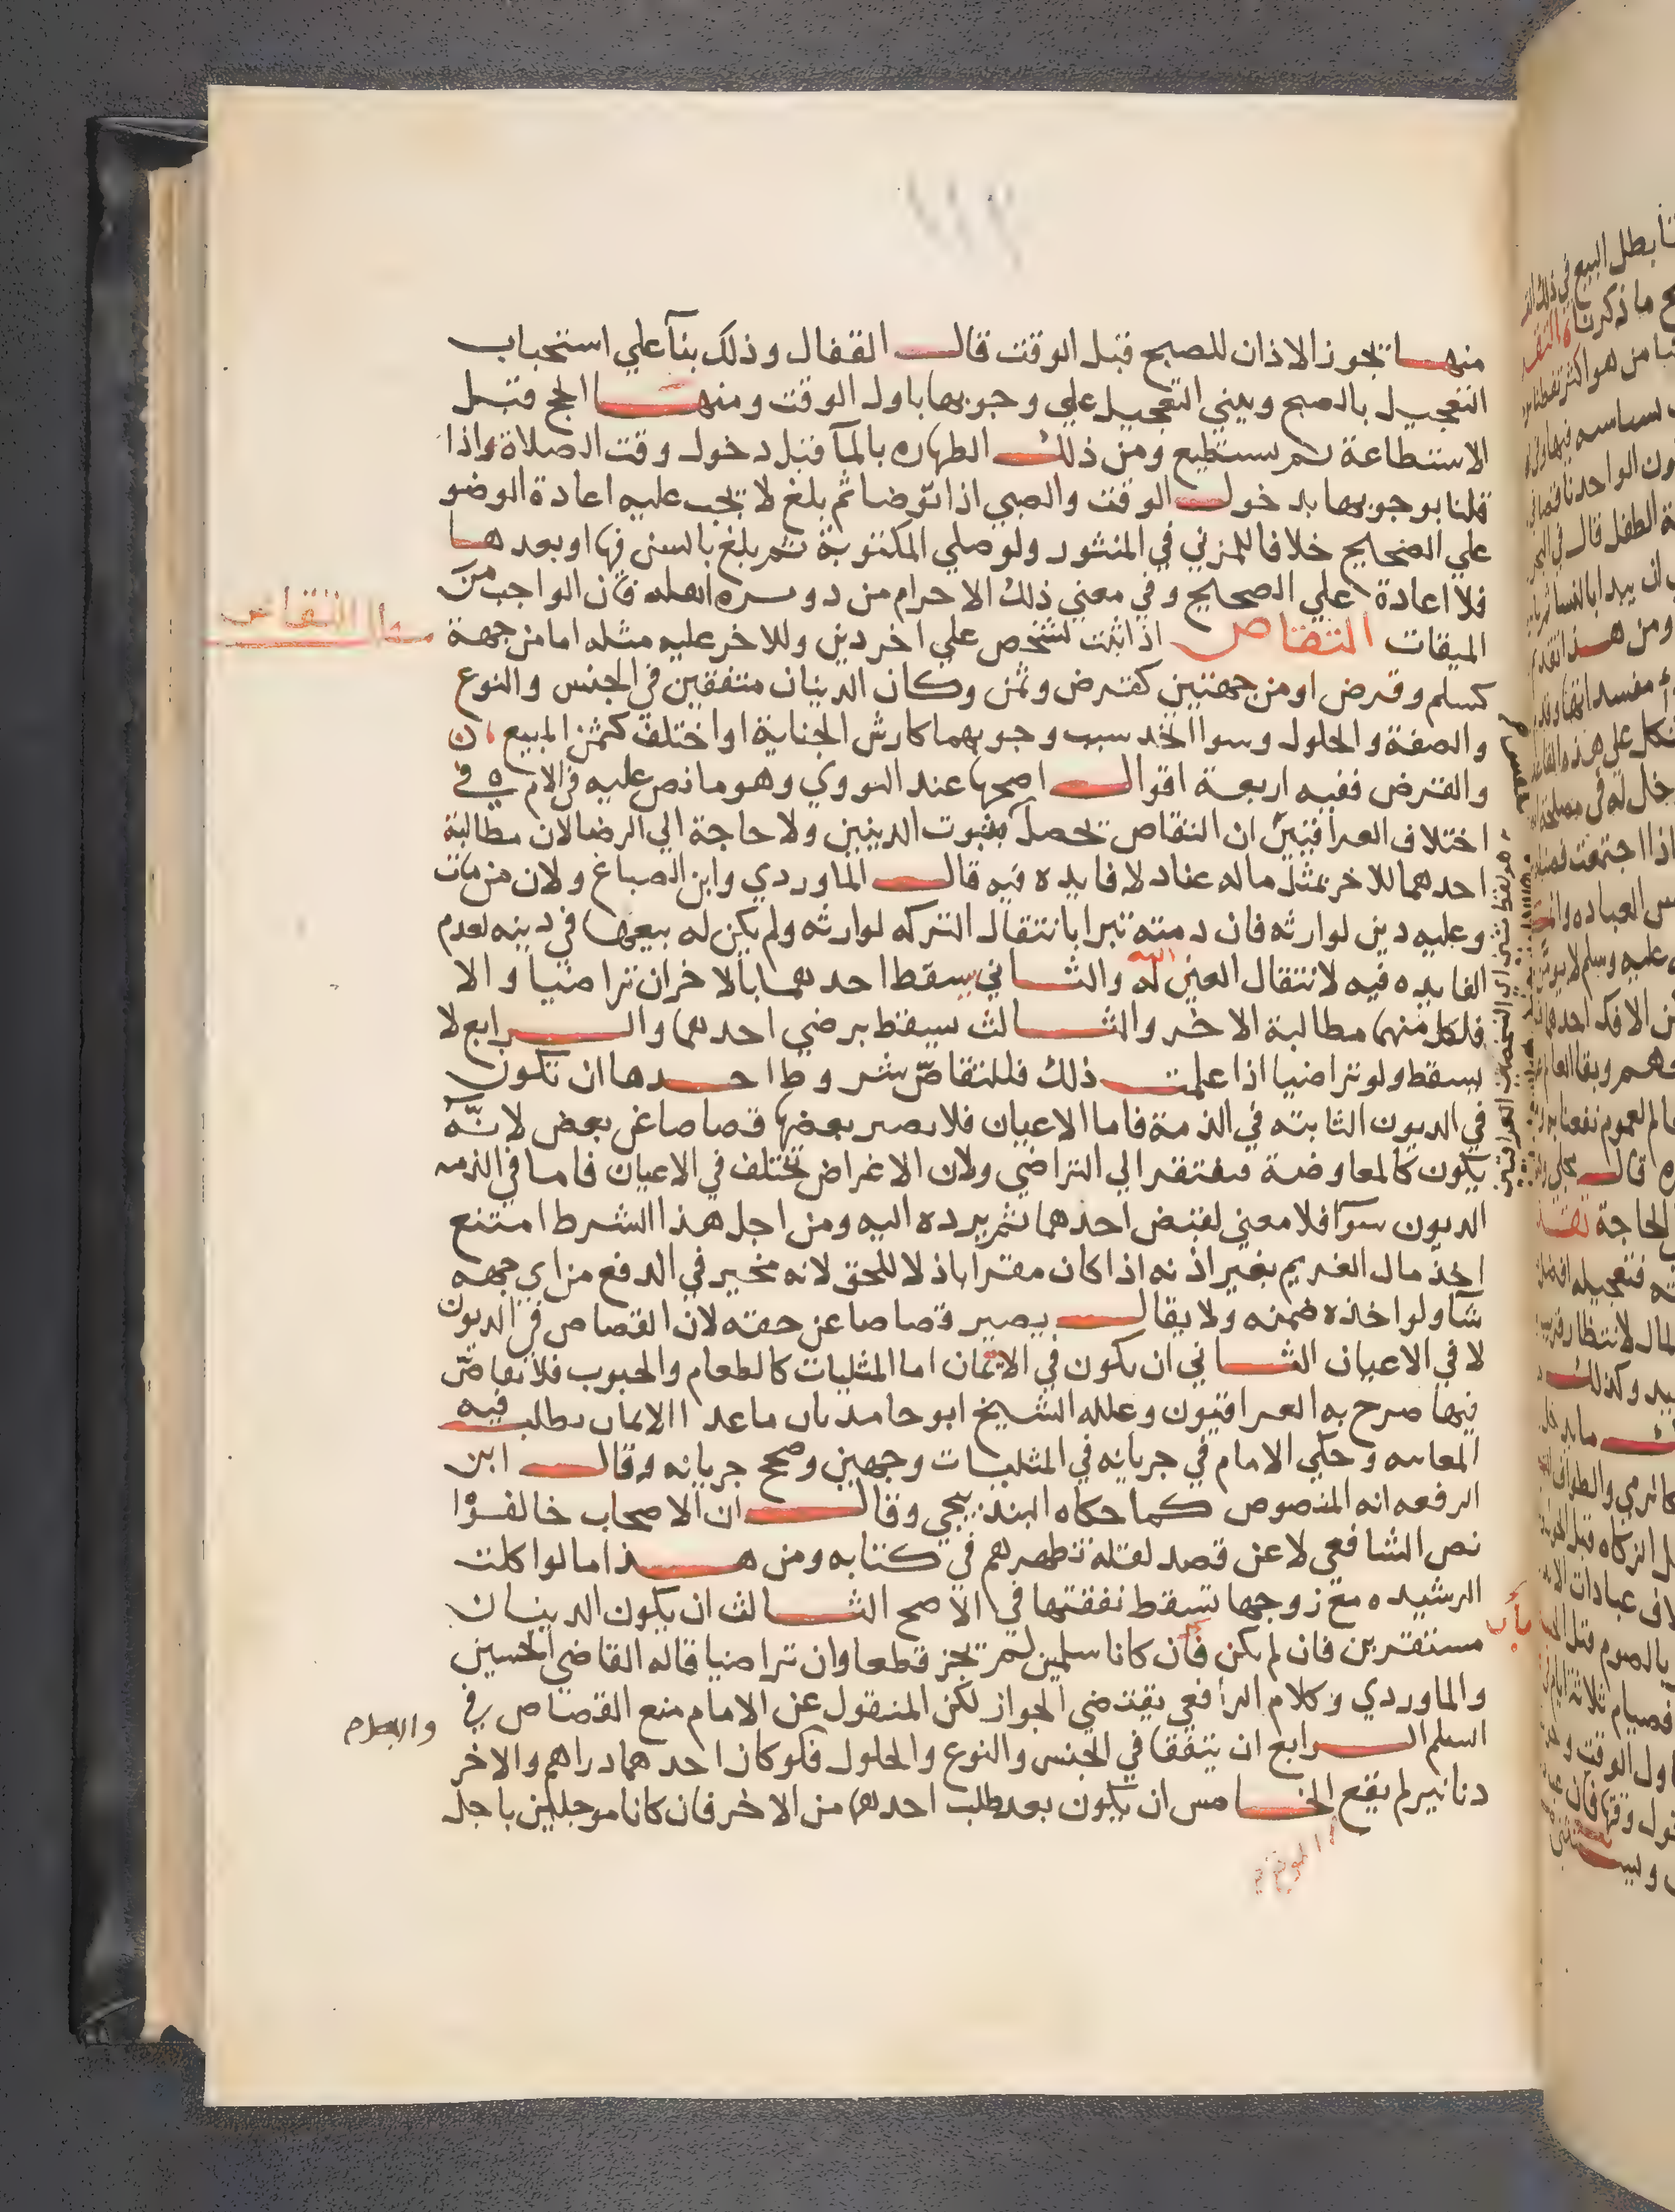 منها تجوز الاذان للصبح قبل الوقت قال القفال وذلك بنآ علي استحباب
التعجيل بالصبح ويبني التعجيل علي وجوبها باول الوقت ومنها الحج قبل
الاستطاعة ثم يستطيع ومن ذلك الطهاره بالمآ قبل دخول وقت الصلاة واذا
قلنا بوجوبها بدخول الوقت والصبي اذا توضا ثم بلغ لا تجب عليه اعادة الوضو
علي الصحيح خلافا للمزني في المنثور ولو صلي المكتوبة ثم بلغ بالسن فيها او بعدها
فلا اعادة علي الصحيح وفي معني ذلك الاحرام من دويره اهله فان الواجب من
الميقات التقاص اذا ثبت لشخص علي اخر دين وللاخر عليه مثله اما من جهة
التقاص
كسلم وقرض او من جهتين كقرض وثمن وكان الدينان متفقين في الجنس والنوع
والصفة والحلول وسوا اتحد سبب وجوبهما كارش الجناية او اختلف كثمن المبيع
والقرض ففيه اربعة اقوال اصحها عند النووي وهو ما نص عليه في الام في
اختلاف العراقيين ان التقاص تحصل بثبوت الدينين ولا حاجة الي الرضا لان مطالبة
احدهما للاخر بمثل ماله عناد لا فايده فيه قال الماوردي وابن الصباغ ولان من مات
وعليه دين لوارثه فان دمته تبرا بانتقال التركه لوارثه ولم يكن له بيعها في دينه لعدم
الفايده فيه لانتقال العين له والثاني يسقط احدهما بالاخر ان تراضيا والا
فلكل منهما مطالبة الاخر والثالث يسقط برضي احدهما والرابع لا
يسقط ولو تراضيا اذا علمت ذلك فللتقاصّ شروط احدها ان تكون
في الديون الثابته في الذمة فاما الاعيان فلا يصير بعضها قصاصا عن بعض لانّه
يكون كالمعاوضة فيفتقر الي التراضي ولان الاغراض تختلف في الاعيان فاما في الذمه
الديون سوآ فلا معني لقبض احدهما ثم يرده اليه ومن اجل هذا الشرط امتنع
اخذ مال الغريم بغير اذنه اذا كان مقرا باذلا للحق لانه مخير في الدفع من اي جهه
شآ ولو اخذه ضمنه ولا يقال يصير قصاصا عن حقه لان القصاص في الديون
لا في الاعيان الثاني ان يكون في الاثمان اما المثليات كالطعام والحبوب فلا تقاصّ
فيها صرح به العراقيون وعلله الشيخ ابو حامد بان ما عدا الاثمان يطلب فيه
المعاينه وحكي الامام في جريانه في المثليات وجهين وصحح جريانه وقال ابن
الرفعه انه المنصوص كما حكاه البندنيجي وقال ان الاصحاب خالفوا
نص الشافعي لا عن قصد لقلة نظرهم في كتابه ومن هذا ما لو اكلت
الرشيده مع زوجها تسقط نفقتها في الاصح الثالث ان يكون الدينان
مستقرين فان لم يكن فان كانا سلمين لم تجز قطعا وان تراضيا قاله القاضي الحسين
والماوردي وكلام الرافعي يقتضي الجواز لكن المنقول عن الامام منع القصاص في
السلم الرابع ان يتفقا في الجنس والنوع والحلول فلو كان احدهما دراهم والاخر
دنانير لم يقع الخامس ان يكون بعد طلب احدهما من الاخر فان كانا موجلين باجل